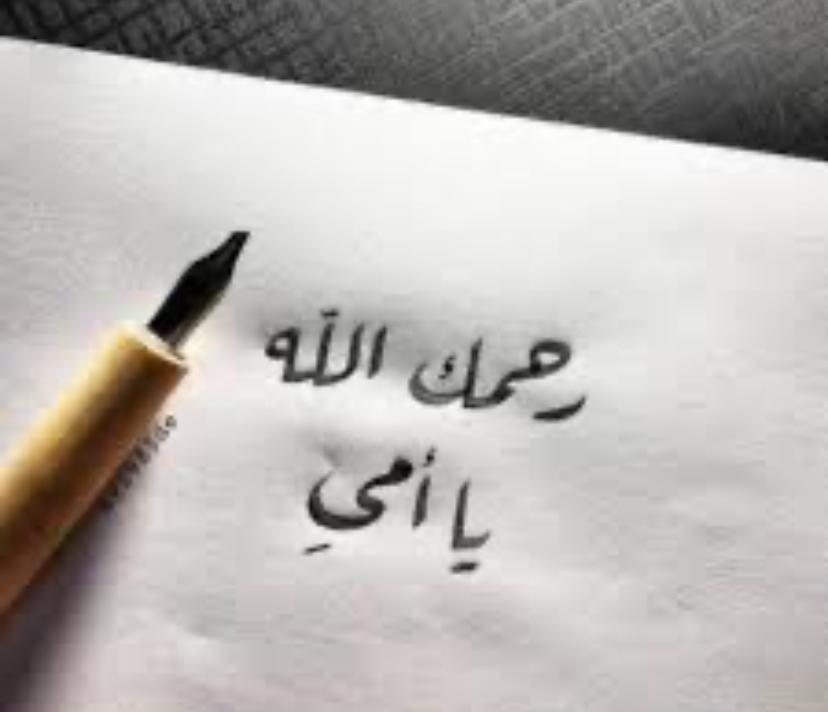 رحمك الله
يا أمي